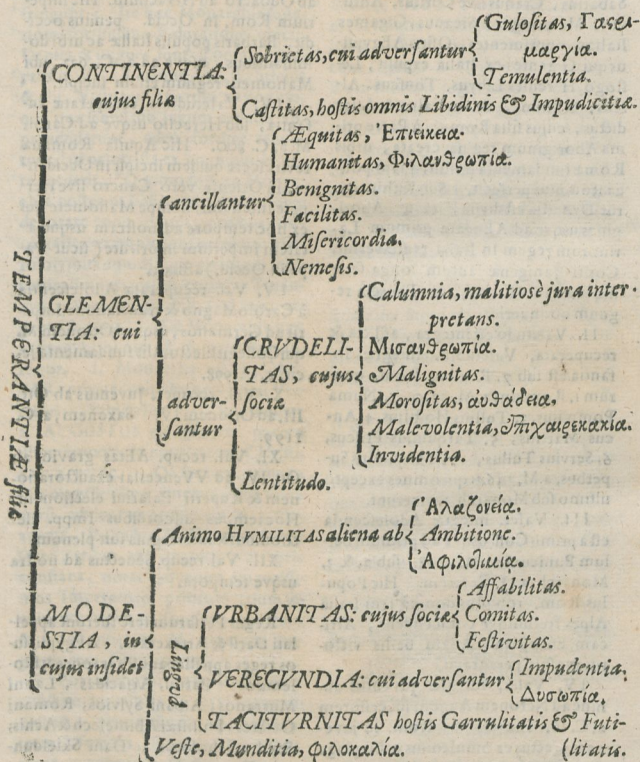 TEMPERANTIÆ filiæ
CONTINENTIA:
cujus filiæ
Sobrietas, cui adversantur
Gulositas, Γαςρι-
μαργία.
Temulentia.
Castitas, hostis omnis Libidinis & Impudicitiæ.
CLEMEN-
TIA: cui
ancillantur
Æquitas, Ἐπιείκεια.
Humanitas, Φιλανθρωπία.
Benignitas.
Facilitas.
Misericordia.
Nemesis.
adver-
santur
CRVDELI-
TAS, cujus
sociæ
Calumnia, malitiosè jura inter-
pretans.
Μισανθρωπία.
Malignitas.
Morositas, αυθάδεια.
Malevolentia, Ἐπιχαιρεκακία.
Invidentia.
Lentitudo.
MODE-
STIA, in
cujus insidet
Animo HVMILITAS aliena ab
Ἀλαζονεία.
Ambitione.
Ἀφιλοτιμία.
Lingua
VRBANITAS: cujus sociæ
Affabilitas.
Comitas.
Festivitas.
VERECVNDIA: cui adversantur
Impudentia.
Δυσωπία.
TACITVRNITAS hostis Garrulitatis & Futi-
(litatis.
Veste, Munditia, φιλοκαλία.